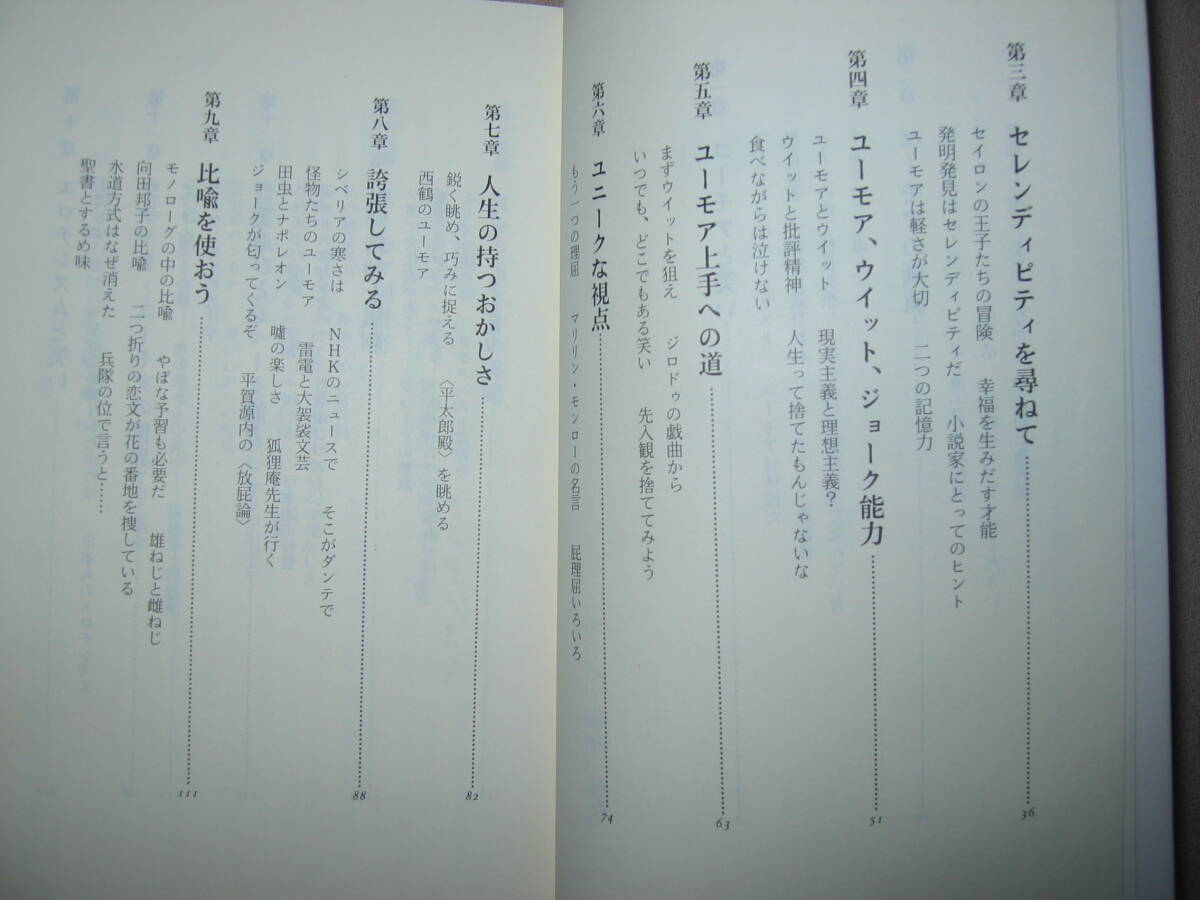 第三章 セレンディピティを尋ねて 36
セイロンの王子たちの冒険 幸福を生みだす才能
発明発見はセレンディピティだ 小説家にとってのヒント
ユーモアは軽さが大切 二つの記憶力
第四章 ユーモア、ウイット、ジョーク能力 51
ユーモアとウイット 現実主義と理想主義?
ウイットと批評精神 人生って捨てたもんじゃないな
食べながらは泣けない
第五章 ユーモア上手への道 63
まずウイットを狙え ジロドゥの戯曲から
いつでも、どこでもある笑い 先入観を捨ててみよう
第六章 ユニークな視点 74
もう一つの理屈 マリリン・モンローの名言 屁理屈いろいろ
第七章 人生の持つおかしさ 82
鋭く眺め、巧みに捉える 〈平太郎殿〉を眺める
西鶴のユーモア
第八章 誇張してみる 88
シベリアの寒さは NHKのニュースで そこがダンテで
怪物たちのユーモア 雷電と大袈裟文芸
田虫とナポレオン 嘘の楽しさ 狐狸庵先生が行く
ジョークが匂ってくるぞ 平賀源内の〈放屁論〉
第九章 比喩を使おう 111
モノローグの中の比喩 やぼな予習も必要だ 雄ねじと雌ねじ
向田邦子の比喩 二つ折りの恋文が花の番地を捜している
水道方式はなぜ消えた 兵隊の位で言うと……
聖書とするめ味